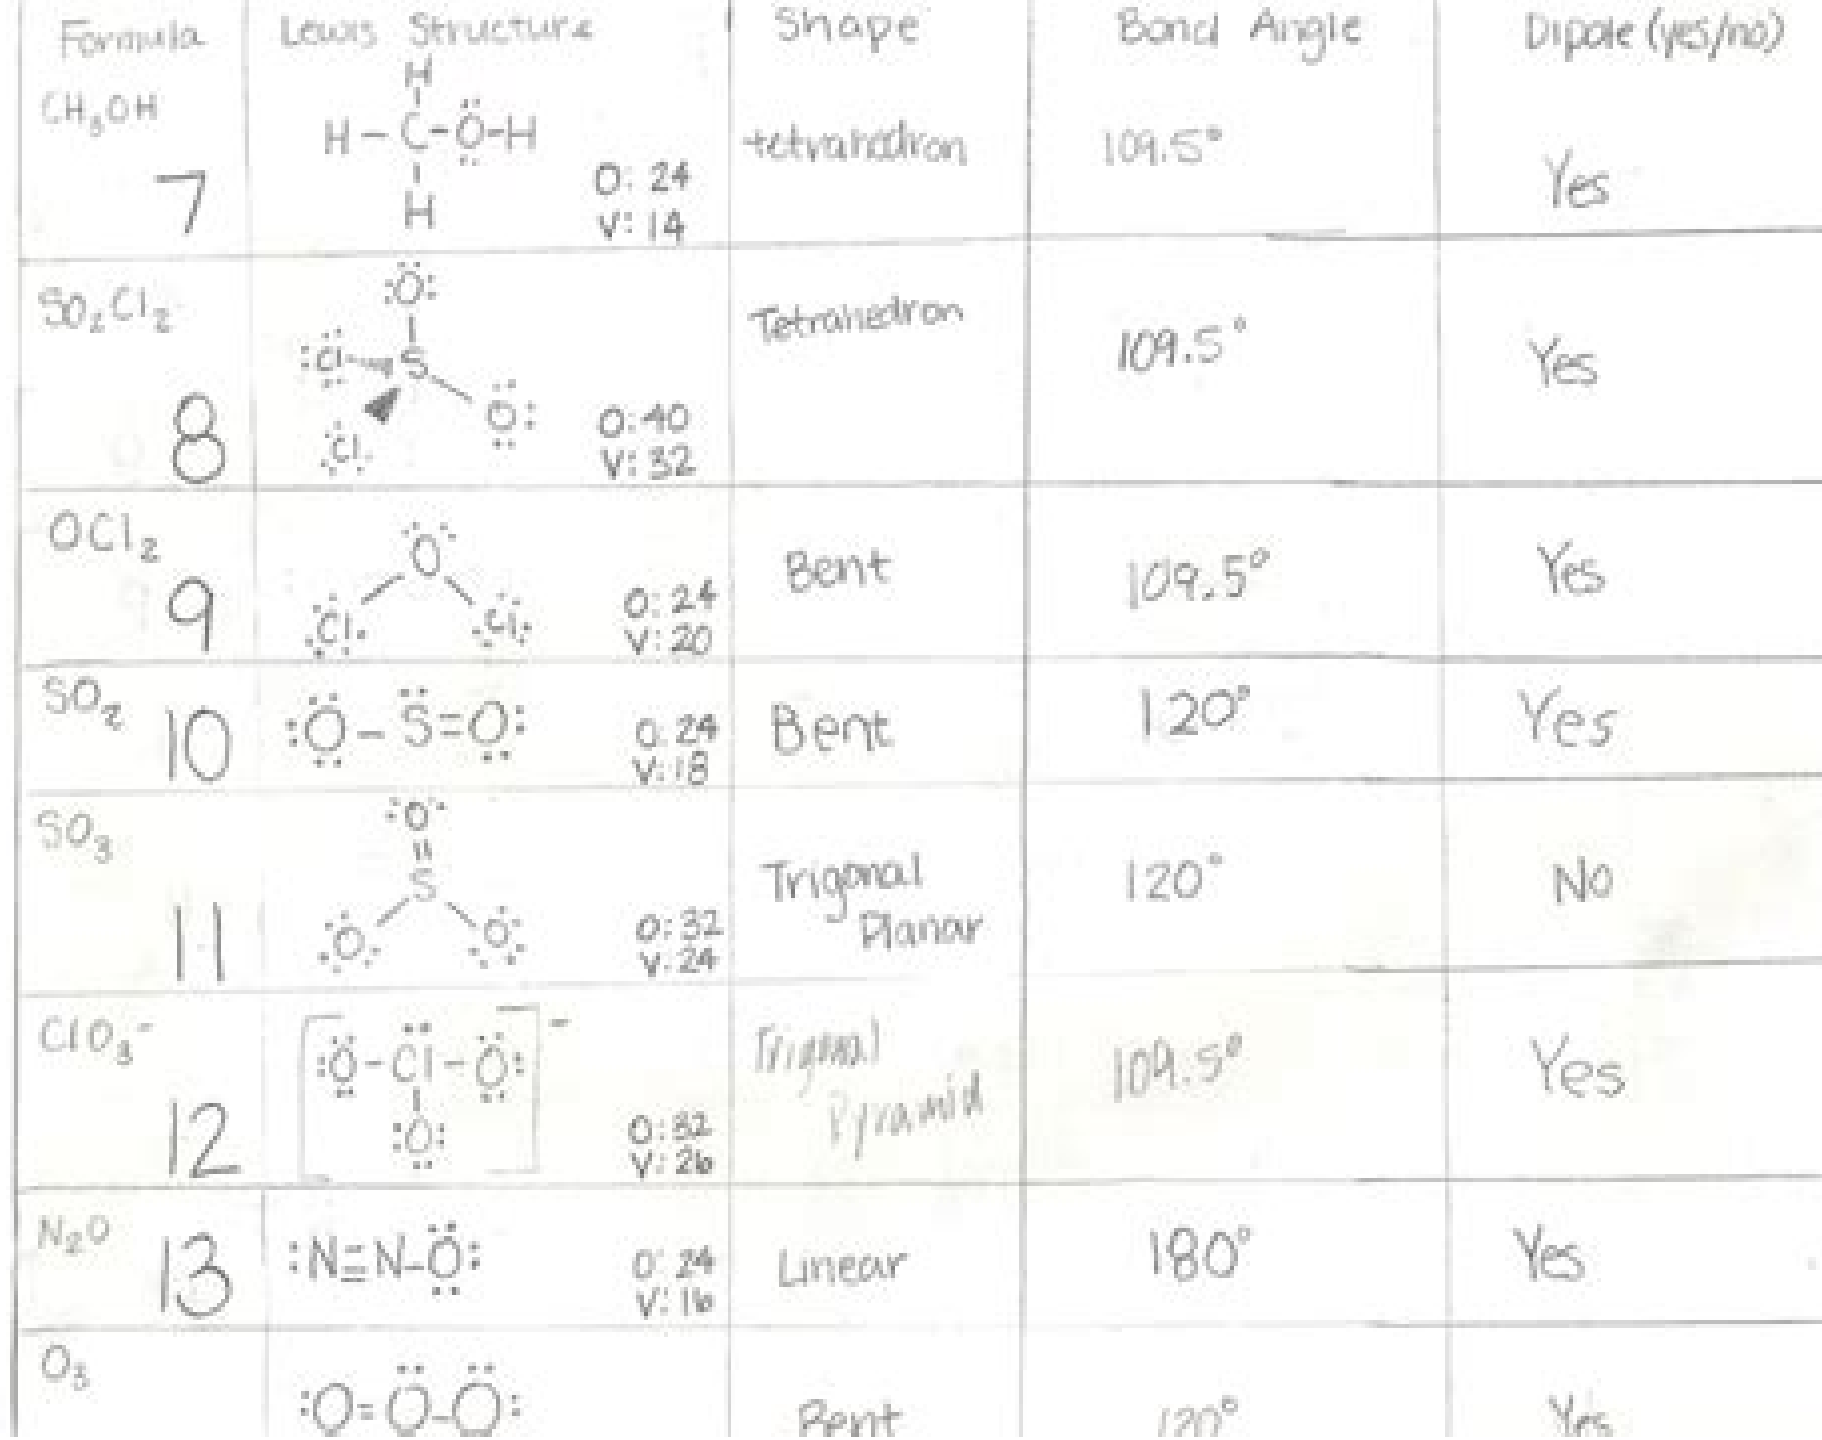 Formula Lewis Structure Shape Bond Angle Dipole (yes/no)
CH₃OH
7
H
H-C-Ö-H
H
O: 24
V: 14
tetrahedron
109.5°
Yes
SO₂Cl₂
8
:Ö:
:Cl S
Cl Ö:
O: 40
V: 32
Tetrahedron
109.5°
Yes
OCl₂
9
O
Cl Cl
O: 24
V: 20
Bent
109.5°
Yes
SO₂
10
:Ö-S̈=O:
O: 24
V: 18
Bent
120°
Yes
SO₃
11
O
=
S
O O
O: 32
V: 24
Trigonal
Planar
120°
No
ClO₃⁻
12
[:Ö-Cl-Ö:]⁻
:O:
O: 32
V: 26
Trigonal
Pyramid
109.5°
Yes
N₂O
13
:N≡N-Ö:
O: 24
V: 16
Linear
180°
Yes
O₃
:O=Ö-Ö:
Bent
120°
Yes